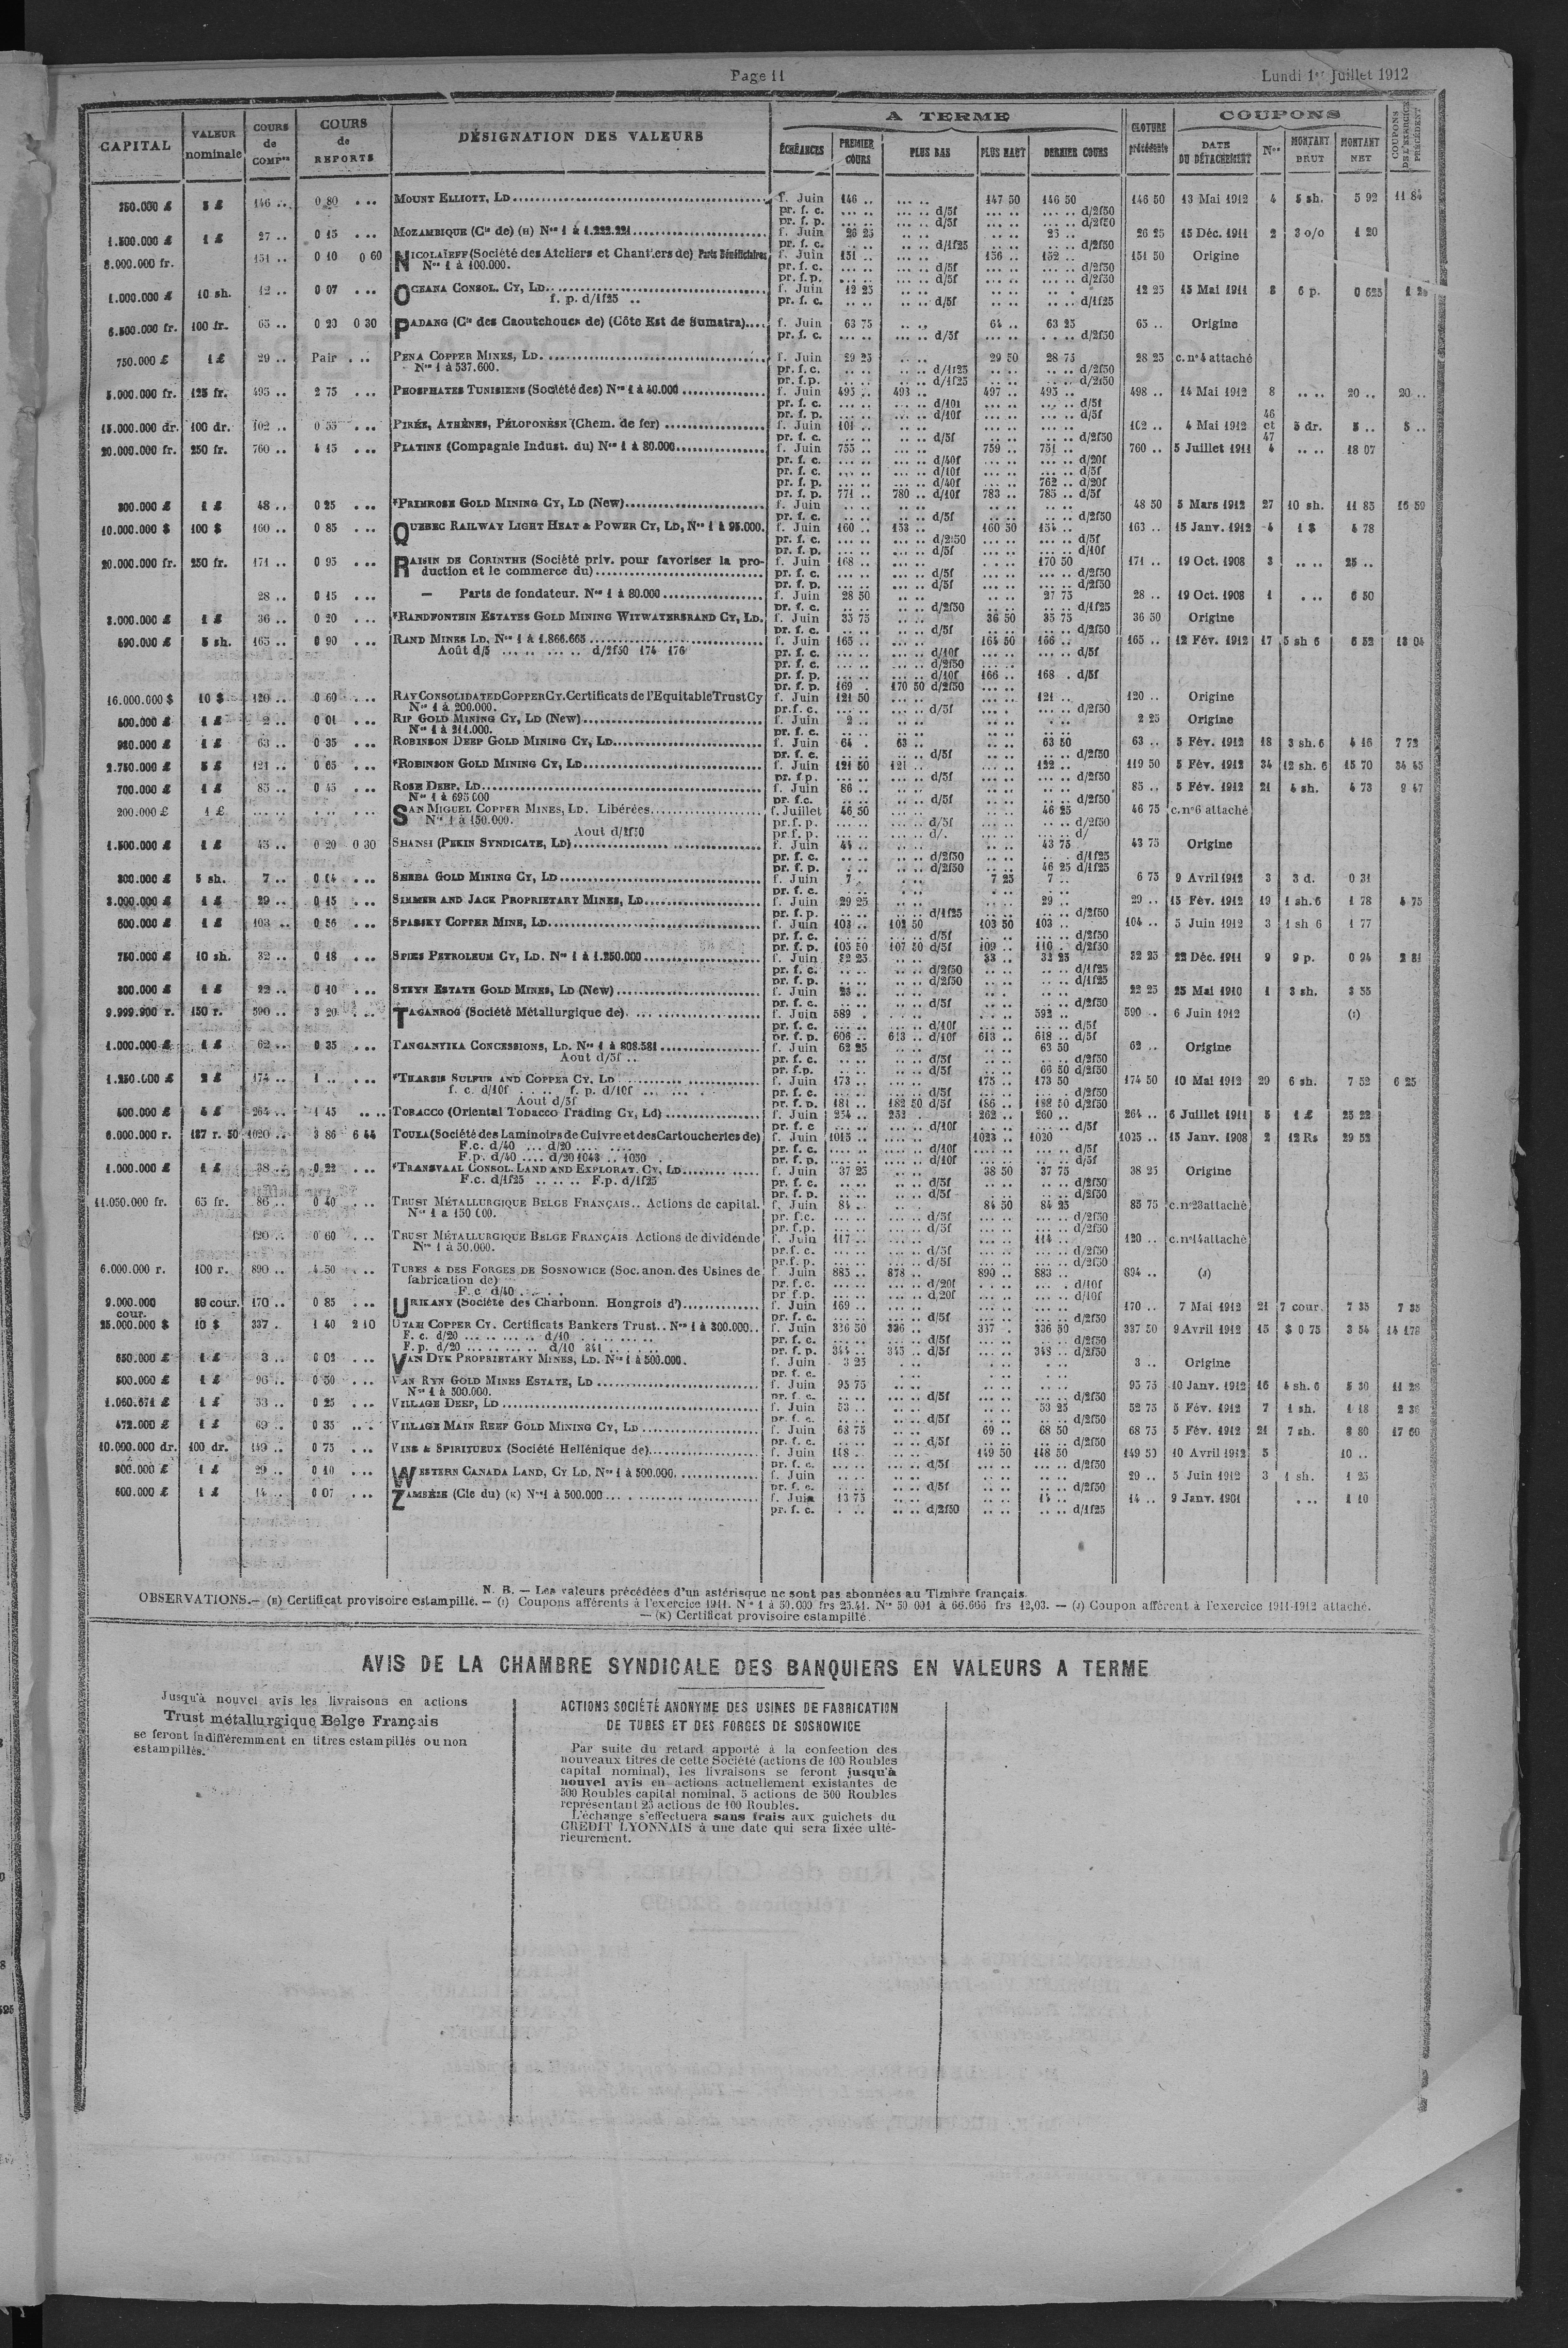 Page 11
Lundi 1er Juillet 1912
CAPITAL VALEUR nominale COURS de COMPon COURS de REPORTS DÉSIGNATION DES VALEURS A TERME CLOTURE précédente COUPONS COUPONS DE L'EXERCICE PRÉCÉDENT
ÉCHÉANCES PREMIER COURS PLUS BAS PLUS HAUT DERNIER COURS DATE DU DÉTACHEMENT Nos MONTANT BRUT MONTANT NET
250.000 £ 5 £ 146 .. 0 80 ... MOUNT ELLIOTT, LD f. Juin 146 .. .. .. 147 50 146 50 146 50 13 Mai 1912 4 5 sh. 5 92 11 84
pr. f. c. d/5f d/2f50
pr. f. p. d/5f d/2f50
1.500.000 £ 1 £ 27 .. 0 15 ... MOZAMBIQUE (Cie de) (H) Nos 1 à 1.222.221 f. Juin 26 25 25 .. 26 25 15 Déc. 1911 2 3 o/o 1 20
pr. f. c. d/1f25 d/2f50
8.000.000 fr. 151 .. 0 10 0 60 NICOLAÏEFF (Société des Ateliers et Chantiers de) Parts Bénéficiaires f. Juin 151 .. 156 .. 152 .. 151 50 Origine
Nos 1 à 100.000. pr. f. c. d/5f d/2f50
pr. f.p. d/5f d/2f50
1.000.000 £ 10 sh. 12 .. 0 07 ... OCEANA CONSOL. CY, LD f. Juin 12 25 12 25 15 Mai 1911 8 6 p. 0 625
f. p. d/1f25 .. pr. f. c. d/5f d/1f25
6.500.000 fr. 100 fr. 65 .. 0 20 0 30 PADANG (Cie des Caoutchoucs de) (Côte Est de Sumatra) f. Juin 63 75 64 .. 63 25 65 .. Origine
pr. f. c. d/5f d/2f50
750.000 £ 1 £ 29 .. Pair ... PENA COPPER MINES, LD. f. Juin 29 25 29 50 28 75 28 25 c. no 4 attaché
Nos 1 à 537.600. pr. f. c. d/1f25 d/2f50
pr. f.p. d/1f25 d/2f50
5.000.000 fr. 125 fr. 495 .. 2 75 ... PHOSPHATES TUNISIENS (Société des) Nos 1 à 40.000 f. Juin 495 .. 493 .. 497 .. 495 .. 498 .. 14 Mai 1912 8 .. .. 20 .. 20 ..
pr. f. c. d/10f d/5f
pr. f. p. d/10f d/5f
15.000.000 dr. 100 dr. 102 .. 0 55 ... PIRÉE, ATHÈNES, PÉLOPONÈSE (Chem. de fer) f. Juin 101 .. 102 .. 4 Mai 1912 46 et 47 5 dr. 5 .. 5 ..
pr. f. c. d/5f d/2f50
20.000.000 fr. 250 fr. 760 .. 4 15 ... PLATINE (Compagnie Indust. du) Nos 1 à 80.000 f. Juin 755 .. 759 .. 751 .. 760 .. 5 Juillet 1911 4 .. .. 18 07
pr. f. c. d/40f d/20f
pr. f. c. d/10f d/5f
pr. f. p. d/40f 762 .. d/20f
pr. f. p. 771 .. 780 .. d/10f 783 .. 785 .. d/5f
300.000 £ 1 £ 48 .. 0 25 ... *PRIMROSE GOLD MINING CY, LD (New) f. Juin 48 50 5 Mars 1912 27 10 sh. 11 85 16 59
pr. f. c. d/5f d/2f50
10.000.000 $ 100 $ 160 .. 0 85 ... QUEBEC RAILWAY LIGHT HEAT & POWER CY, LD, Nos 1 à 95.000. f. Juin 160 .. 153 .. 160 50 154 .. 163 .. 15 Janv. 1912 4 1 $ 4 78
pr. f. c. d/2f50 d/5f
pr. f. p. d/5f d/10f
20.000.000 fr. 250 fr. 171 .. 0 95 ... RAISIN DE CORINTHE (Société priv. pour favoriser la pro- f. Juin 168 .. 170 50 171 .. 19 Oct. 1908 3 .. .. 25 ..
duction et le commerce du) pr. f. c. d/5f d/2f50
pr. f. p. d/5f d/2f50
28 .. 0 15 ... — Parts de fondateur. Nos 1 à 80.000 f. Juin 28 50 27 75 28 .. 19 Oct. 1908 1 .. .. 6 50
pr. f. c. d/2f50 d/1f25
3.000.000 £ 1 £ 36 .. 0 20 ... *RANDFONTEIN ESTATES GOLD MINING WITWATERSRAND CY, LD. f. Juin 35 75 36 50 35 75 36 50 Origine
pr. f. c. d/5f d/2f50
490.000 £ 5 sh. 165 .. 0 90 ... RAND MINES LD, Nos 1 à 1.866.665 f. Juin 165 .. 164 50 166 .. 165 .. 12 Fév. 1912 17 5 sh 6 6 52 13 04
Août d/5 ... .. ... .. d/2f50 174 176 pr. f. c. d/10f d/5f
pr. f. c. d/2f50
pr. f. p. d/10f 166 .. 168 . d/5f
pr. f. p. 169 . 170 50 d/2f50
16.000.000 $ 10 $ 120 .. 0 60 ... RAY CONSOLIDATED COPPER CY. Certificats de l'Equitable Trust Cy f. Juin 121 50 121 .. 120 .. Origine
Nos 1 à 200.000. pr. f. c. d/5f d/2f50
500.000 £ 1 £ 2 .. 0 01 ... RIP GOLD MINING CY, LD (New) f. Juin 2 .. 2 25 Origine
Nos 1 à 211.000. pr. f. c.
980.000 £ 1 £ 63 .. 0 35 ... ROBINSON DEEP GOLD MINING CY, LD f. Juin 64 . 63 .. 63 50 63 .. 5 Fév. 1912 18 3 sh. 6 4 16 7 72
pr. f. c. d/5f d/2f50
2.750.000 £ 5 £ 121 .. 0 65 ... *ROBINSON GOLD MINING CY, LD f. Juin 121 50 121 .. 122 .. 119 50 5 Fév. 1912 34 12 sh. 6 15 70 34 45
pr. f.p. d/5f d/2f50
700.000 £ 1 £ 85 .. 0 45 ... ROSE DEEP, LD f. Juin 86 .. 85 .. 5 Fév. 1912 21 4 sh. 4 73 9 47
Nos 1 à 695 000 pr. f.c. d/5f d/2f50
200.000 £ 1 £ SAN MIGUEL COPPER MINES, LD. Libérées f. Juillet 46 50 46 25 46 75 c. no 6 attaché
Nos 1 à 150.000. pr. f. p. d/5f d/2f50
Aout d/2f50 pr f. p. d/. d/
1.500.000 £ 1 £ 45 .. 0 20 0 30 SHANSI (PEKIN SYNDICATE, LD) f. Juin 44 .. 43 75 43 75 Origine
pr. f. c. d/2f50 d/1f25
pr. f. p. d/2f50 46 25 d/1f25
300.000 £ 5 sh. 7 .. 0 04 ... SHEBA GOLD MINING CY, LD f. Juin 7 . 7 25 7 .. 6 75 9 Avril 1912 3 3 d. 0 31
pr. f. c.
3.000.000 £ 1 £ 29 .. 0 15 ... SIMMER AND JACK PROPRIETARY MINES, LD f. Juin 29 25 29 .. 29 .. 15 Fév. 1912 19 1 sh. 6 1 78 4 75
pr. f. p. d/1f25 d/2f50
600.000 £ 1 £ 103 .. 0 56 ... SPASSKY COPPER MINE, LD f. Juin 103 .. 102 50 103 50 103 .. 104 .. 5 Juin 1912 3 1 sh 6 1 77
pr. f. c. d/5f d/2f50
pr. f. p. 105 50 107 50 d/5f 109 .. 110 . d/2f50
750.000 £ 10 sh. 32 .. 0 18 ... SPIES PETROLEUM CY, LD. Nos 1 à 1.250.000 f. Juin 32 25 33 .. 32 25 32 25 22 Déc. 1911 9 9 p. 0 94 2 81
pr. f. c. d/2f50 d/1f25
pr. f. p. d/2f50 d/1f25
300.000 £ 1 £ 22 .. 0 10 ... STEYN ESTATE GOLD MINES, LD (New) f. Juin 23 .. 22 25 25 Mai 1910 1 3 sh. 3 55
pr. f. c. d/5f d/2f50
9.999.900 r. 150 r. 590 .. 3 20 ... TAGANROG (Société Métallurgique de) f. Juin 589 . 592 .. 590 .. 6 Juin 1912 (I)
pr. f. c. d/10f d/5f
pr. f. p. 606 .. 613 .. d/10f 613 .. 618 .. d/5f
1.000.000 £ 1 £ 62 .. 0 35 ... TANGANYIKA CONCESSIONS, LD. Nos 1 à 808.581 f. Juin 62 25 63 50 62 .. Origine
Aout d/5f .. pr. f. c. d/5f d/2f50
pr. f.p. d/5f 66 50 d/2f50
1.250.000 £ 2 £ 174 .. 1 .. ... *THARSIS SULFUR AND COPPER CY. LD f. Juin 173 .. 175 .. 173 50 174 50 10 Mai 1912 29 6 sh. 7 52 6 25
f. c. d/10f ... .. f. p. d/10f pr. f. c. d/5f d/2f50
Aout d/5f pr. f. p. 181 .. 182 50 d/5f 186 .. 188 50 d/2f50
500.000 £ 4 £ 264 .. 1 45 .. .. TOBACCO (Oriental Tobacco Trading Cy, Ld) f. Juin 254 .. 252 .. 262 .. 260 .. 264 .. 6 Juillet 1911 5 1 £ 25 22
pr. f. c d/10f d/5f
6.000.000 r. 187 r. 50 1020 .. 3 86 6 44 TOULA (Société des Laminoirs de Cuivre et des Cartoucheries de) f. Juin 1015 .. 1023 .. 1020 1025 .. 15 Janv. 1908 2 12 Rs 29 52
F.c. d/40 ... d/20 pr. f. c. d/10f d/5f
F.p. d/40 .... d/20 1043 .. 1050 . pr. f. p. d/10f d/5f
1.000.000 £ 1 £ 38 .. 0 22 ... *TRANSVAAL CONSOL. LAND AND EXPLORAT. CY, LD f. Juin 37 25 38 50 37 75 38 25 Origine
F.c. d/1f25 .. .. .. F.p. d/1f25 pr. f. c. d/5f d/2f50
pr. f. p. d/5f d/2f50
11.050.000 fr. 65 fr. 86 .. 0 40 ... TRUST MÉTALLURGIQUE BELGE FRANÇAIS.. Actions de capital. f. Juin 84 .. 84 50 84 25 85 75 c. no 23 attaché
Nos 1 a 150 000. pr. f.c. d/5f d/2f50
pr. f.p. d/5f d/2f50
120 .. 0 60 ... TRUST MÉTALLURGIQUE BELGE FRANÇAIS Actions de dividende f. Juin 117 .. 114 .. 120 .. c. no 14 attaché
Nos 1 à 50.000. pr. f. c. d/5f d/2f50
pr. f. p. d/5f d/2f50
6.000.000 r. 100 r. 890 .. 4 50 ... TUBES & DES FORGES DE SOSNOWICE (Soc. anon. des Usines de f. Juin 885 .. 878 .. 890 .. 883 .. 894 .. (J)
fabrication de) pr. f. c. d/20f d/10f
F.c d/40 pr f.p. d,20f d/10f
9.000.000 cour. 80 cour. 170 .. 0 85 ... URIKANY (Société des Charbonn. Hongrois d') f. Juin 169 .. 170 .. 7 Mai 1912 21 7 cour. 7 35 7 35
pr. f. c. d/5f d/2f50
25.000.000 $ 10 $ 337 . 1 40 2 10 UTAH COPPER CY. Certificats Bankers Trust.. Nos 1 à 300.000.. f. Juin 336 50 336 .. 337 . 336 50 337 50 9 Avril 1912 15 $ 0 75 3 54 14 178
F. c. d/20 ... .. ... .. d/10 pr. f. c. d/5f d/2f50
F. p. d/20 ... .. ... .. d/10 341 pr. f. p. 344 .. 345 .. d/5f 348 .. d/2f50
550.000 £ 1 £ 3 .. 0 02 ... VAN DYK PROPRIETARY MINES, LD. Nos 1 à 500.000. f. Juin 3 25 3 .. Origine
pr. f. c.
500.000 £ 1 £ 96 .. 0 50 ... VAN RYN GOLD MINES ESTATE, LD f. Juin 95 75 95 75 10 Janv. 1912 16 4 sh. 6 5 30 11 28
Nos 1 à 500.000. pr. f. c. d/5f d/2f50
1.060.671 £ 1 £ 53 .. 0 25 ... VILLAGE DEEP, LD f. Juin 53 .. 53 25 52 75 5 Fév. 1912 7 1 sh. 1 18 2 36
pr. f. c. d/5f d/2f50
472.000 £ 1 £ 69 .. 0 35 ... VILLAGE MAIN REEF GOLD MINING CY, LD f. Juin 68 75 69 .. 68 50 68 75 5 Fév. 1912 21 7 sh. 8 80 17 60
pr. f. c. d/5f d/2f50
10.000.000 dr. 100 dr. 149 .. 0 75 ... VINS & SPIRITUEUX (Société Hellénique de) f. Juin 148 .. 149 50 148 50 149 50 10 Avril 1912 5 10 ..
pr. f. c. d/5f d/2f50
300.000 £ 1 £ 29 .. 0 10 ... WESTERN CANADA LAND, CY LD, Nos 1 à 500.000. f. Juin 29 .. 5 Juin 1912 3 1 sh. 1 25
pr. f. c. d/5f d/2f50
600.000 £ 1 £ 14 .. 0 07 ... ZAMBÈZE (Cie du) (K) Nos 1 à 500.000 f. Juin 13 75 14 .. 14 .. 9 Janv. 1901 .. .. 1 10
pr. f. c. d/2f50 d/1f25
N. B. — Les valeurs précédées d'un astérisque ne sont pas abonnées au Timbre français.
OBSERVATIONS.— (H) Certificat provisoire estampillé. — (I) Coupons afférents à l'exercice 1911. Nos 1 à 50.000 frs 25.41. Nos 50 001 à 66.666 frs 12,03. — (J) Coupon afférent à l'exercice 1911-1912 attaché.
— (K) Certificat provisoire estampillé.
AVIS DE LA CHAMBRE SYNDICALE DES BANQUIERS EN VALEURS A TERME
Jusqu'à nouvel avis les livraisons en actions
Trust métallurgique Belge Français
se feront indifféremment en titres estampillés ou non
estampillés.
ACTIONS SOCIÉTÉ ANONYME DES USINES DE FABRICATION
DE TUBES ET DES FORGES DE SOSNOWICE
Par suite du retard apporté à la confection des
nouveaux titres de cette Société (actions de 100 Roubles
capital nominal), les livraisons se feront jusqu'à
nouvel avis en actions actuellement existantes de
500 Roubles capital nominal, 5 actions de 500 Roubles
représentant 25 actions de 100 Roubles.
L'échange s'effectuera sans frais aux guichets du
CREDIT LYONNAIS à une date qui sera fixée ulté-
rieurement.